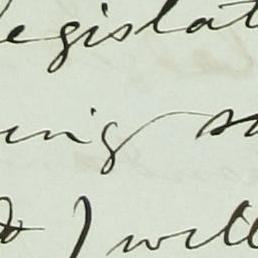 egislat
ing
I will